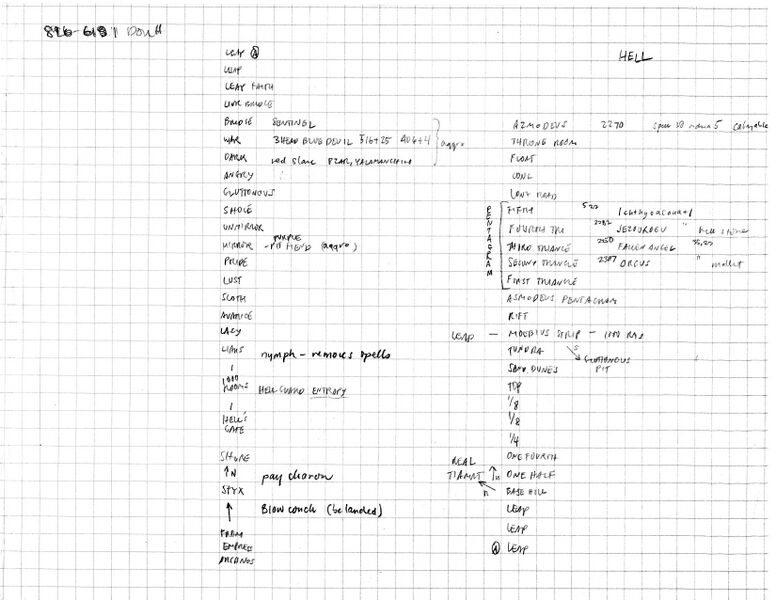 HELL
LEAP A
LEAP
LEAP FAITH
LIAR BRIDGE
BRIDGE SENTINEL
WAR 3 HEAD BLUE DEVIL 516+25 406+4 } aggro
DARK red slave
ANGRY
GLUTTONOUS
SHOLE
UNMIRROR
MIRROR - PURPLE PIT FIEND (aggro)
PRIDE
LUST
SLOTH
AVARICE
LACY
LIARS nymph - removes spells
1
1000 ROOMS HELL GUARD ENTROPY
1
HELL'S GATE
SHORE
↑N pay charon
STYX
↑ Blow conch (be landed)
FROM
EMPRESS
ARCANOS
ASMODEUS 2270
THRONE ROOM
FLOAT
LONG
LONG ROAD
PENTAGRAM
FIFTH 522
FOURTH TRI 2282 " hell stone
THIRD TRIANGLE 2250 FALLEN ANGEL
SECOND TRIANGLE 2387 ORCUS " mallet
FIRST TRIANGLE
ASMODEUS PENTAGRAM
RIFT
LEAP - MOEBIUS STRIP - 1000
TUNDRA S GLUTTONOUS PIT
SAND DUNES
TOP
1/8
1/8
1/4
ONE FOURTH
REAL TIAMAT ↑n ONE HALF
n BASE HILL
LEAP
LEAP
A LEAP